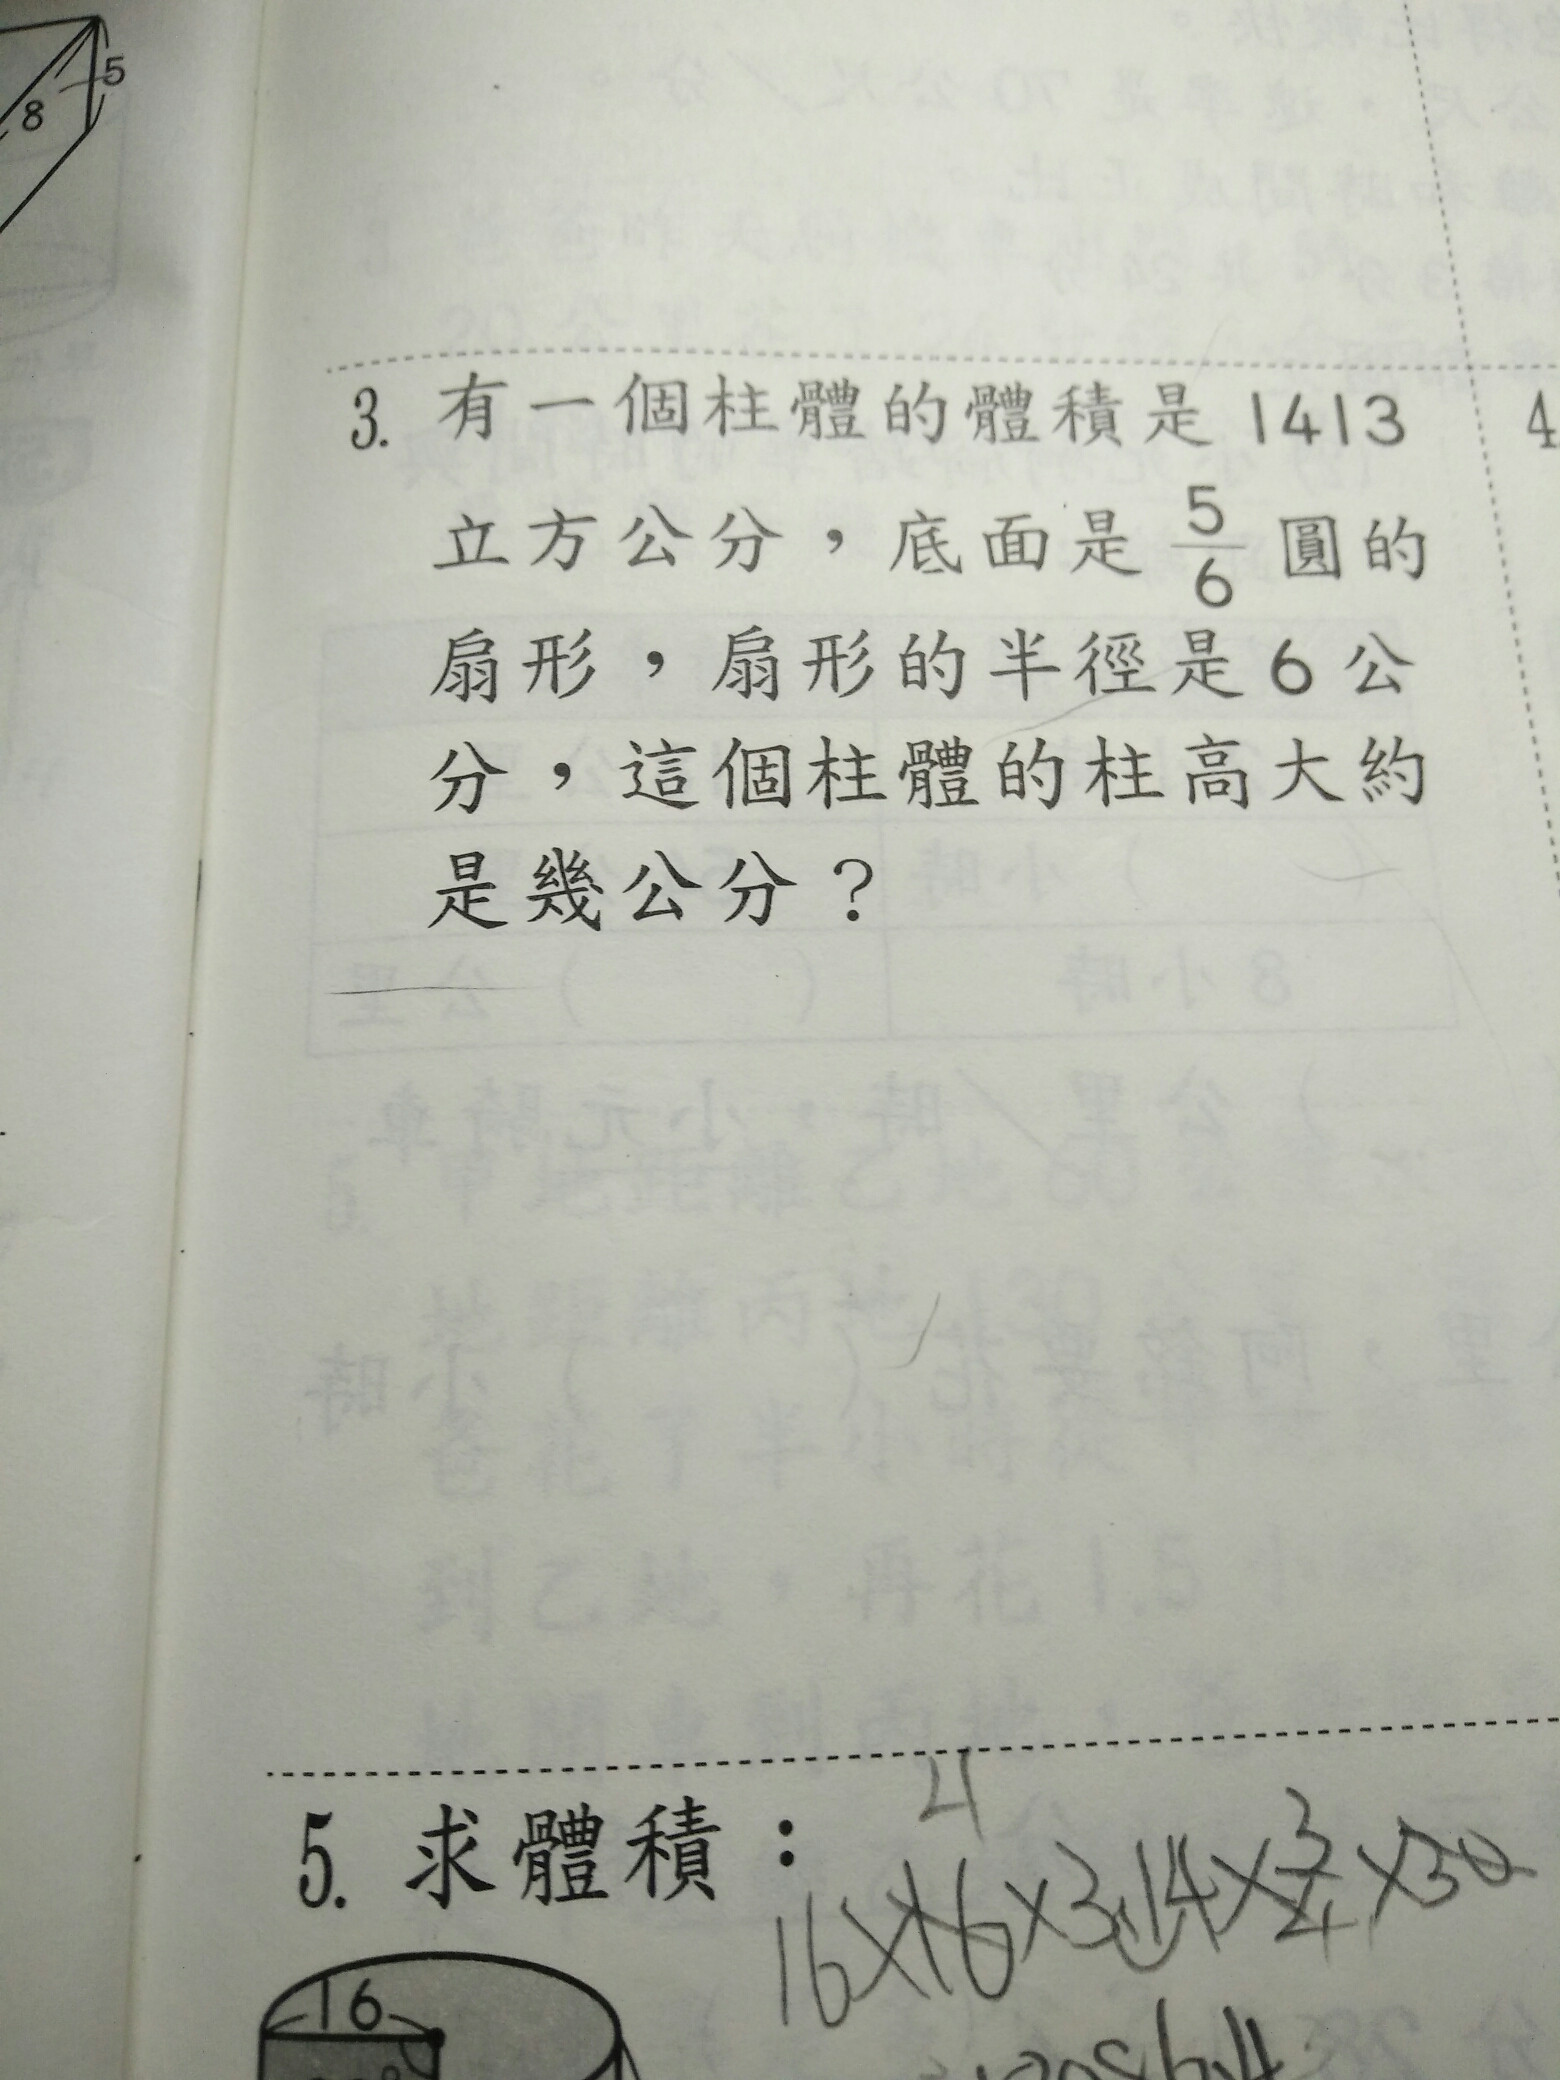 5
8
3. 有一個柱體的體積是 1413
立方公分，底面是 5/6 圓的
扇形，扇形的半徑是 6 公
分，這個柱體的柱高大約
是幾公分？
4
5. 求體積：
4
16×16×3.14×3/4×30
16